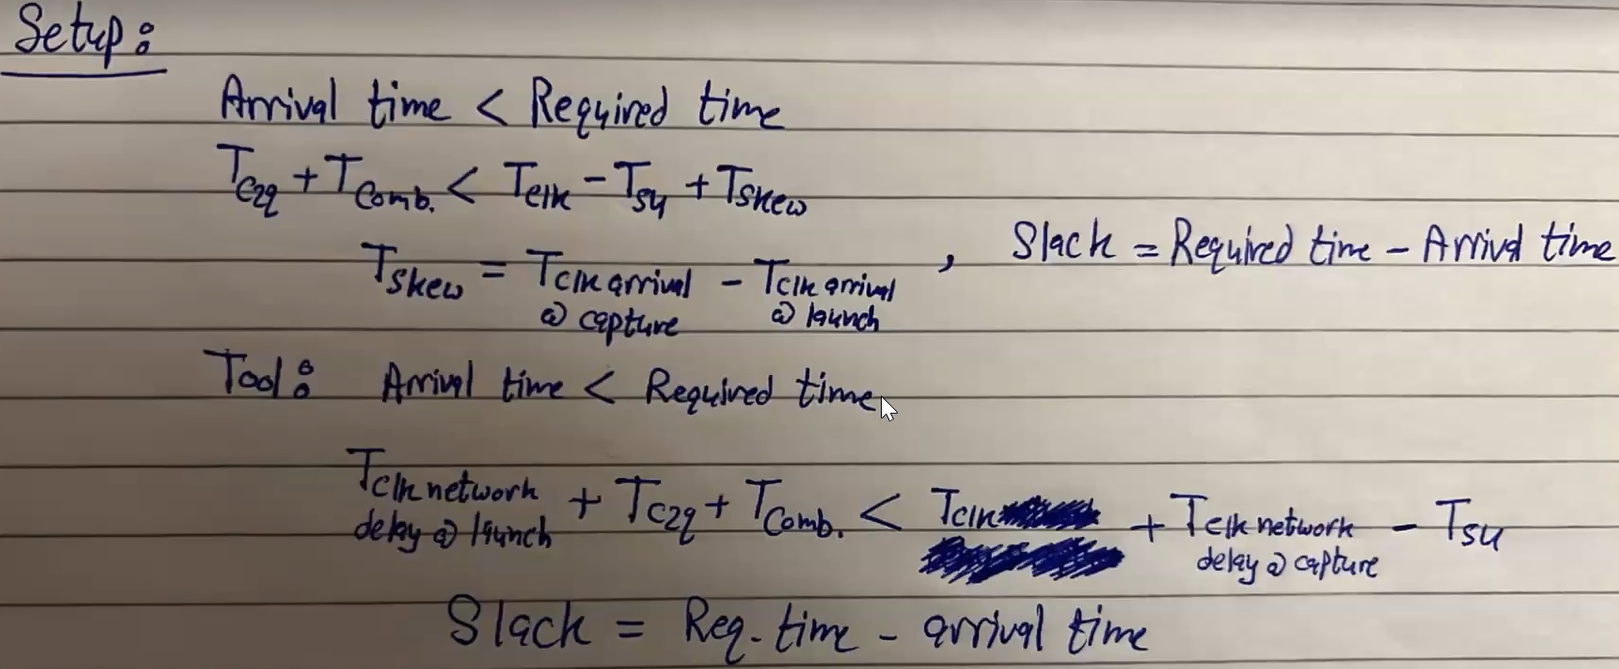 Setup:
Arrival time < Required time
Tc2q + TComb. < Tclk - Tsu + Tskew
Tskew = Tclk arrival @ capture - Tclk arrival @ launch , Slack = Required time - Arrival time
Tool: Arrival time < Required time
Tclk network delay @ launch + Tc2q + TComb. < Tclk + Tclk network delay @ capture - Tsu
Slack = Req. time - arrival time